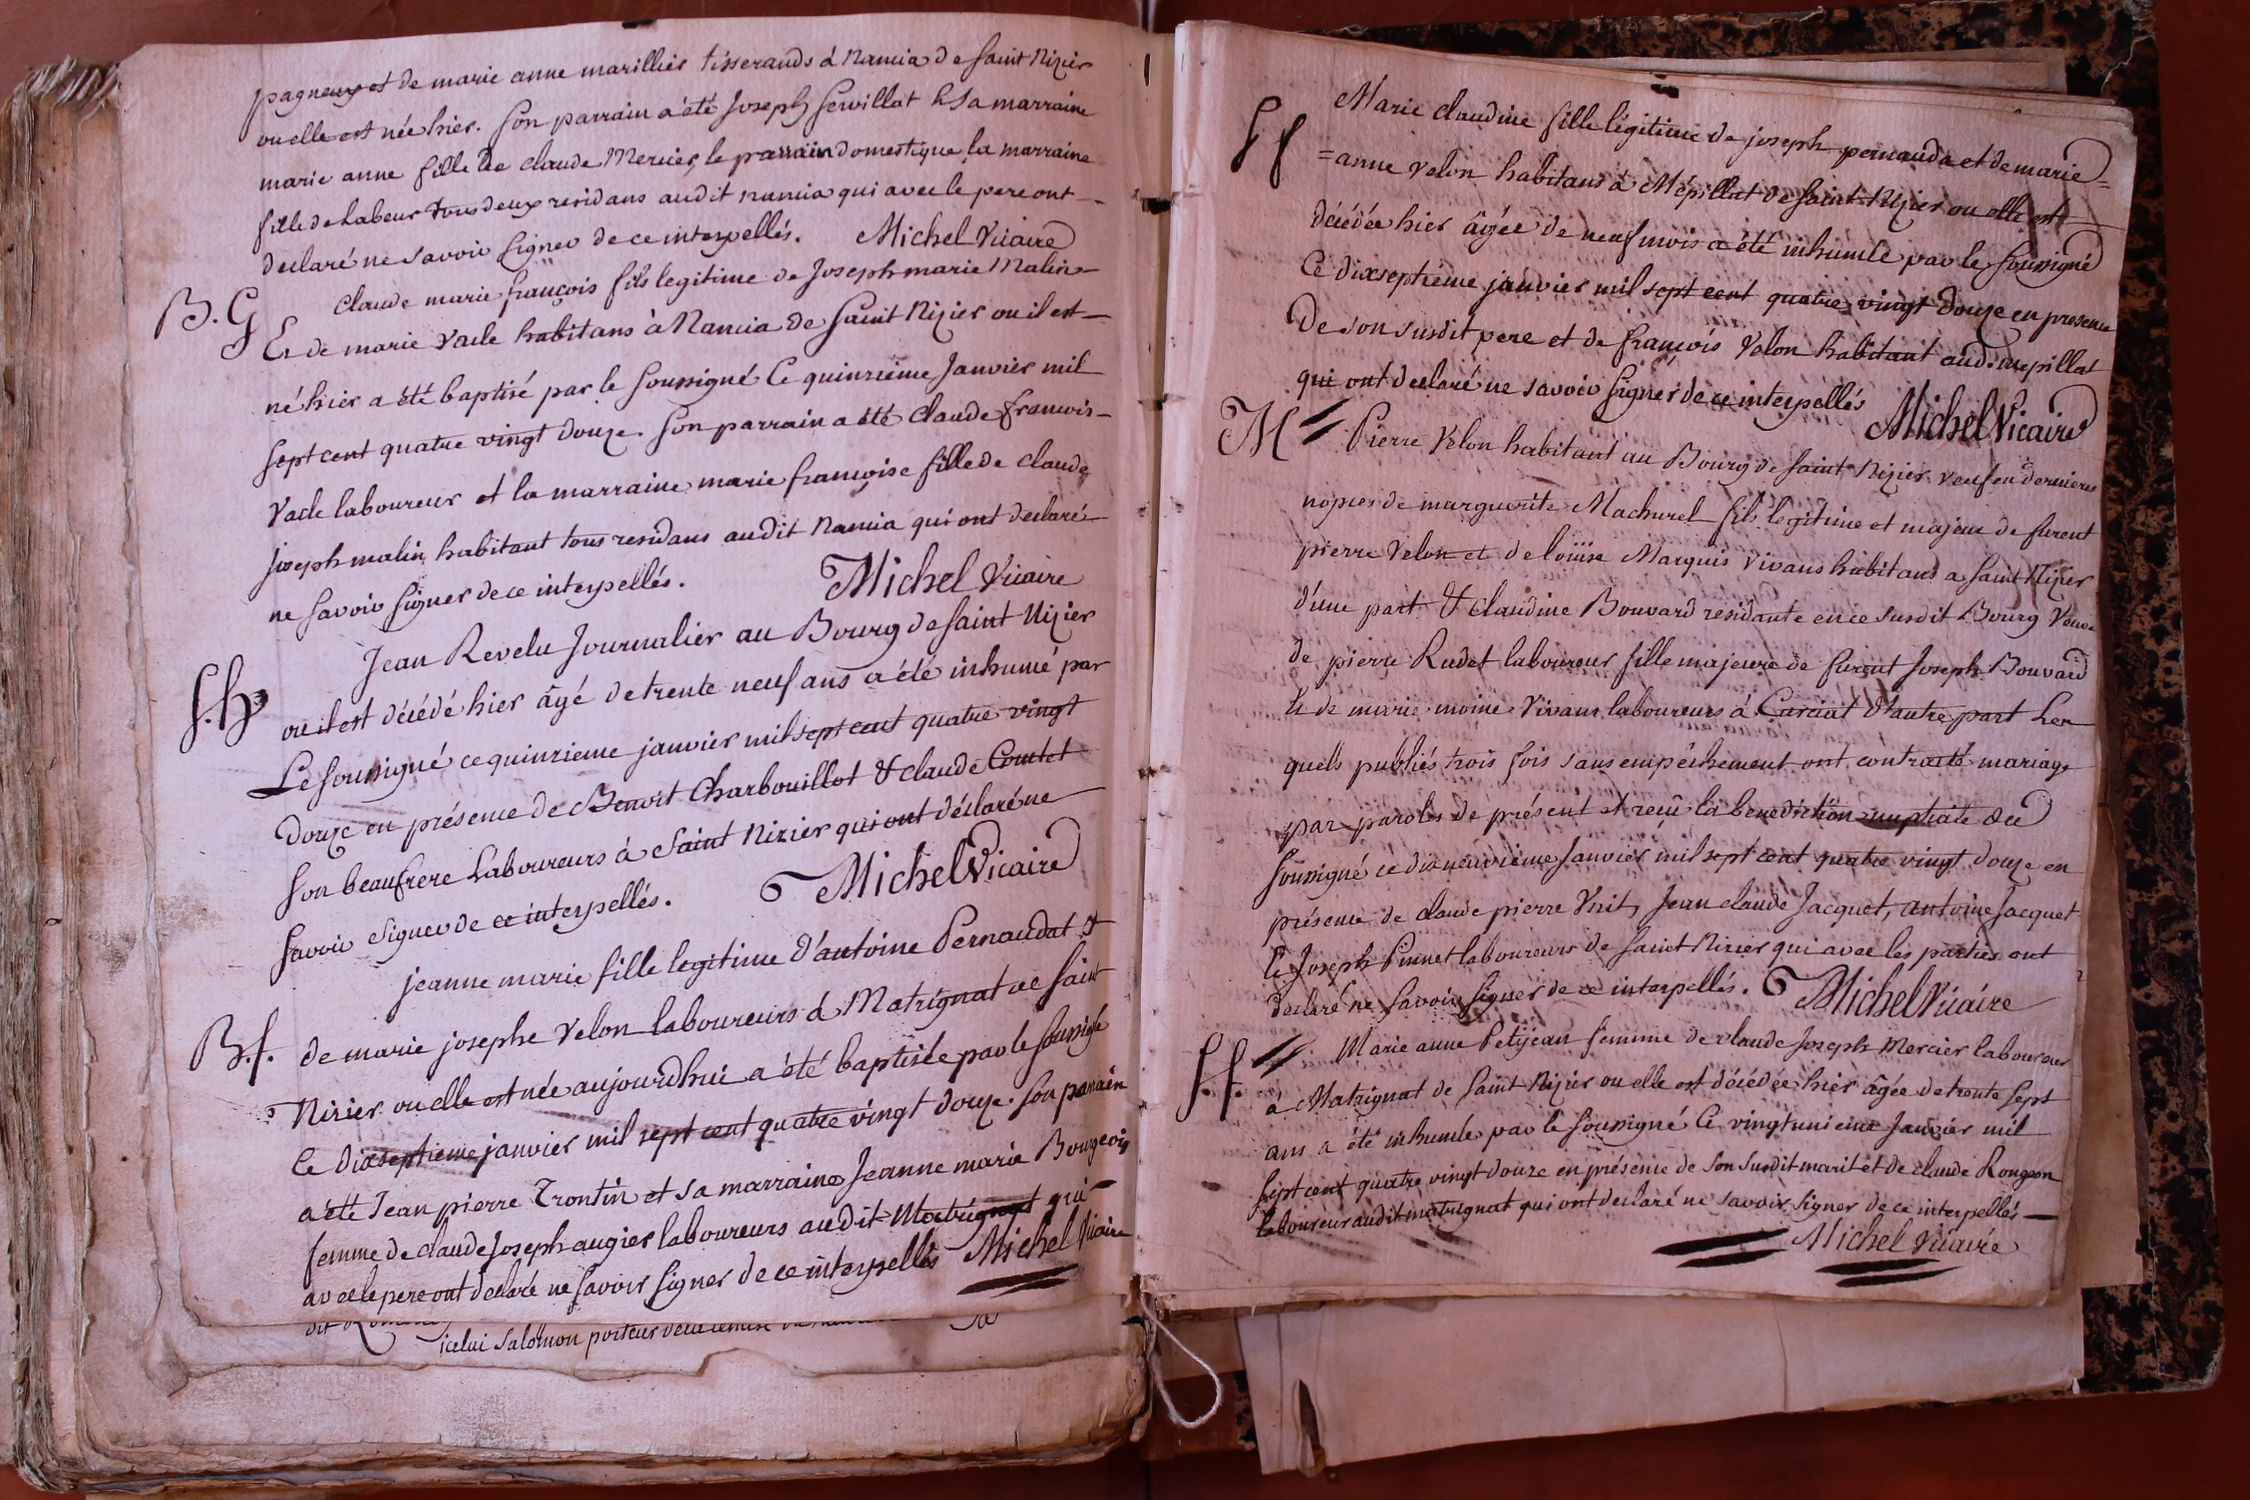 pagneux et de marie anne marillier tisserands à Nancia de saint Nizier
ou elle est née hier. son parrain a été Joseph Servillat & sa marraine
marie anne fille de claude Mercier, le parrain domestique la marraine
fille de Labeur tous deux residans audit nancia qui avec le pere ont
declaré ne savoir signer de ce interpellés. Michel Vicaire
B. G
Claude marie françois fils legitime de Joseph marie Malin
& de marie Vacle habitans à Nancia de saint Nizier ou il est
né hier a été baptisé par le soussigné Ce quinzieme Janvier mil
sept cent quatre vingt douze. son parrain a été claude francois
Vacle laboureur et la marraine marie françoise fille de claude
joseph malin habitant tous residans audit Nancia qui ont declaré
ne savoir signer de ce interpellés. Michel Vicaire
S.h
Jean Revelu Journalier au Bourg de saint Nizier
ou il est décédé hier âgé de trente neuf ans a été inhumé par
Le soussigné ce quinzieme janvier mil sept cent quatre vingt
douze en présence de Benoit Charbouillot & claude Contet
son beaufrere Laboureurs à Saint Nizier qui ont déclaré ne
savoir signer de ce interpellés. Michel Vicaire
B.f.
jeanne marie fille legitime d'antoine Pernaudat &
de marie josephe Velon laboureurs à Matrignat de saint
Nizier ou elle est née aujourdhui a été baptisée par le soussigné
Ce dixseptieme janvier mil sept cent quatre vingt douze. son parrain
a été Jean pierre Trontin et sa marraine Jeanne marie Bourgeois
femme de claude Joseph augier laboureurs audit Matrignat qui
avec le pere ont declaré ne savoir signer de ce interpellés Michel Vicaire
icelui salomon porteur
S f
Marie claudine fille légitime de joseph pernauda et de marie=
=anne velon habitans à Mépillat de saint Nizier ou elle est
décédée hier âgée de neuf mois a été inhumée par le soussigné
Ce dixseptieme janvier mil sept cent quatre vingt douze en presence
De son susdit pere et de françois Velon habitant aud. mepillat
qui ont declaré ne savoir signer de ce interpellés Michel Vicaire
M
Pierre Velon habitant au Bourg de saint Nizier veuf en dernieres
nopces de marguerite Machurel fils legitime et majeur de furent
pierre Velon et de loüise Marquis vivans habitans a saint Nizier
d'une part & Claudine Bouvard residante en ce susdit Bourg Veuve
de pierre Rudet laboureur fille majeure de furent Joseph Bouvard
& de marie moine vivans laboureurs à Curciat d'autre part Les
quels publiés trois fois sans empêchement ont contracté mariage
par paroles de présent et reçu la benediction nuptiale du
soussigné ce dixneuvieme Janvier mil sept cent quatre vingt douze en
présence de claude pierre Vuit, Jean claude Jacquet, antoine Jacquet
& Joseph Pinnet laboureurs de saint Nizier qui avec les parties ont
declaré ne savoir signer de ce interpellés. Michel Vicaire
S.f.
Marie anne Petijean femme de claude Joseph Mercier laboureur
à Matrignat de saint Nizier ou elle est décédée hier âgée de trente sept
ans a été inhumée par le soussigné Ce vingtunieme Janvier mil
sept cent quatre vingt douze en présence de son susdit marit et de claude Rongeon
laboureur audit matrignat qui ont declaré ne savoir signer de ce interpellés
Michel Vicaire